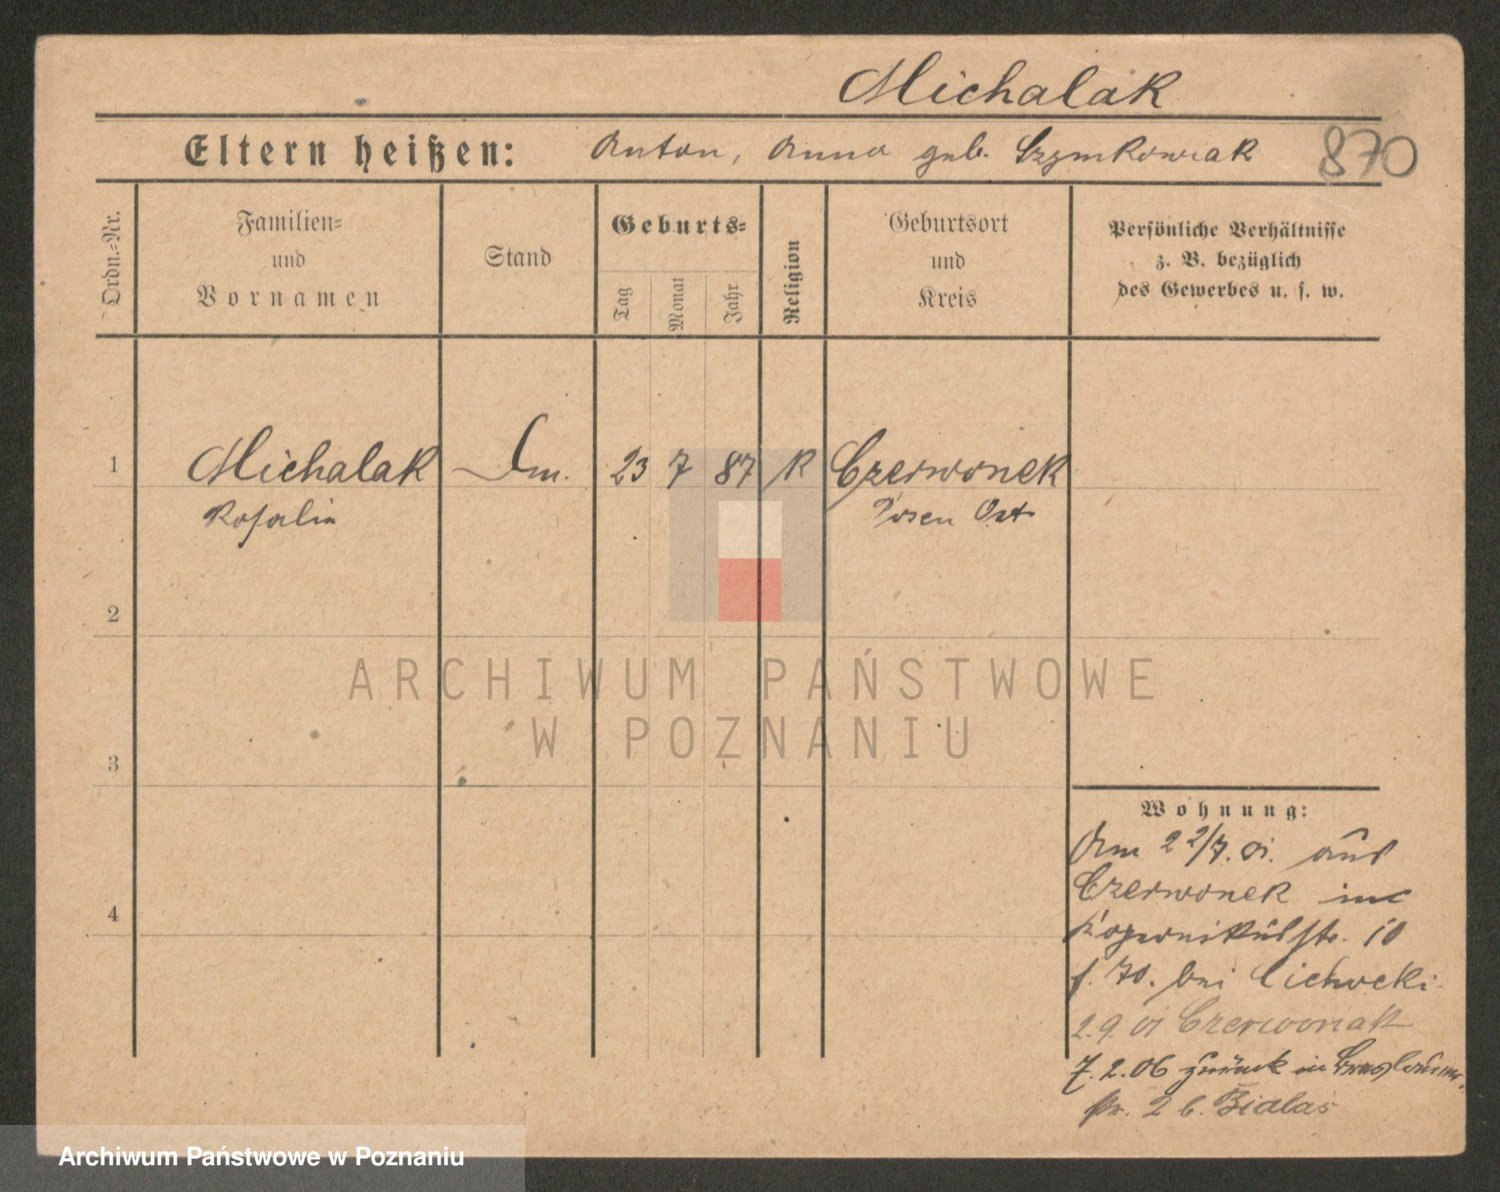 Michalak
Eltern heißen: Anton, Anna geb. Szymkowiak 870
Ordn.=Nr.
Familien=
und
Vornamen
Stand
Geburts=
Tag
Monat
Jahr
Religion
Geburtsort
und
Kreis
Persönliche Verhältnisse
z. B. bezüglich
des Gewerbes u. s. w.
1 Michalak 23 7 87 K Czerwonek
Rosalie Posen Ost
2
ARCHIWUM PAŃSTWOWE
W POZNANIU
3
Wohnung:
Am 22/7. 01. aus
Czerwonek in
Kopernikusstr. 10
bei Cichocki
2.9.01 Czerwonak
4
7.2.06 zurück in
2 b. Bialas
Archiwum Państwowe w Poznaniu